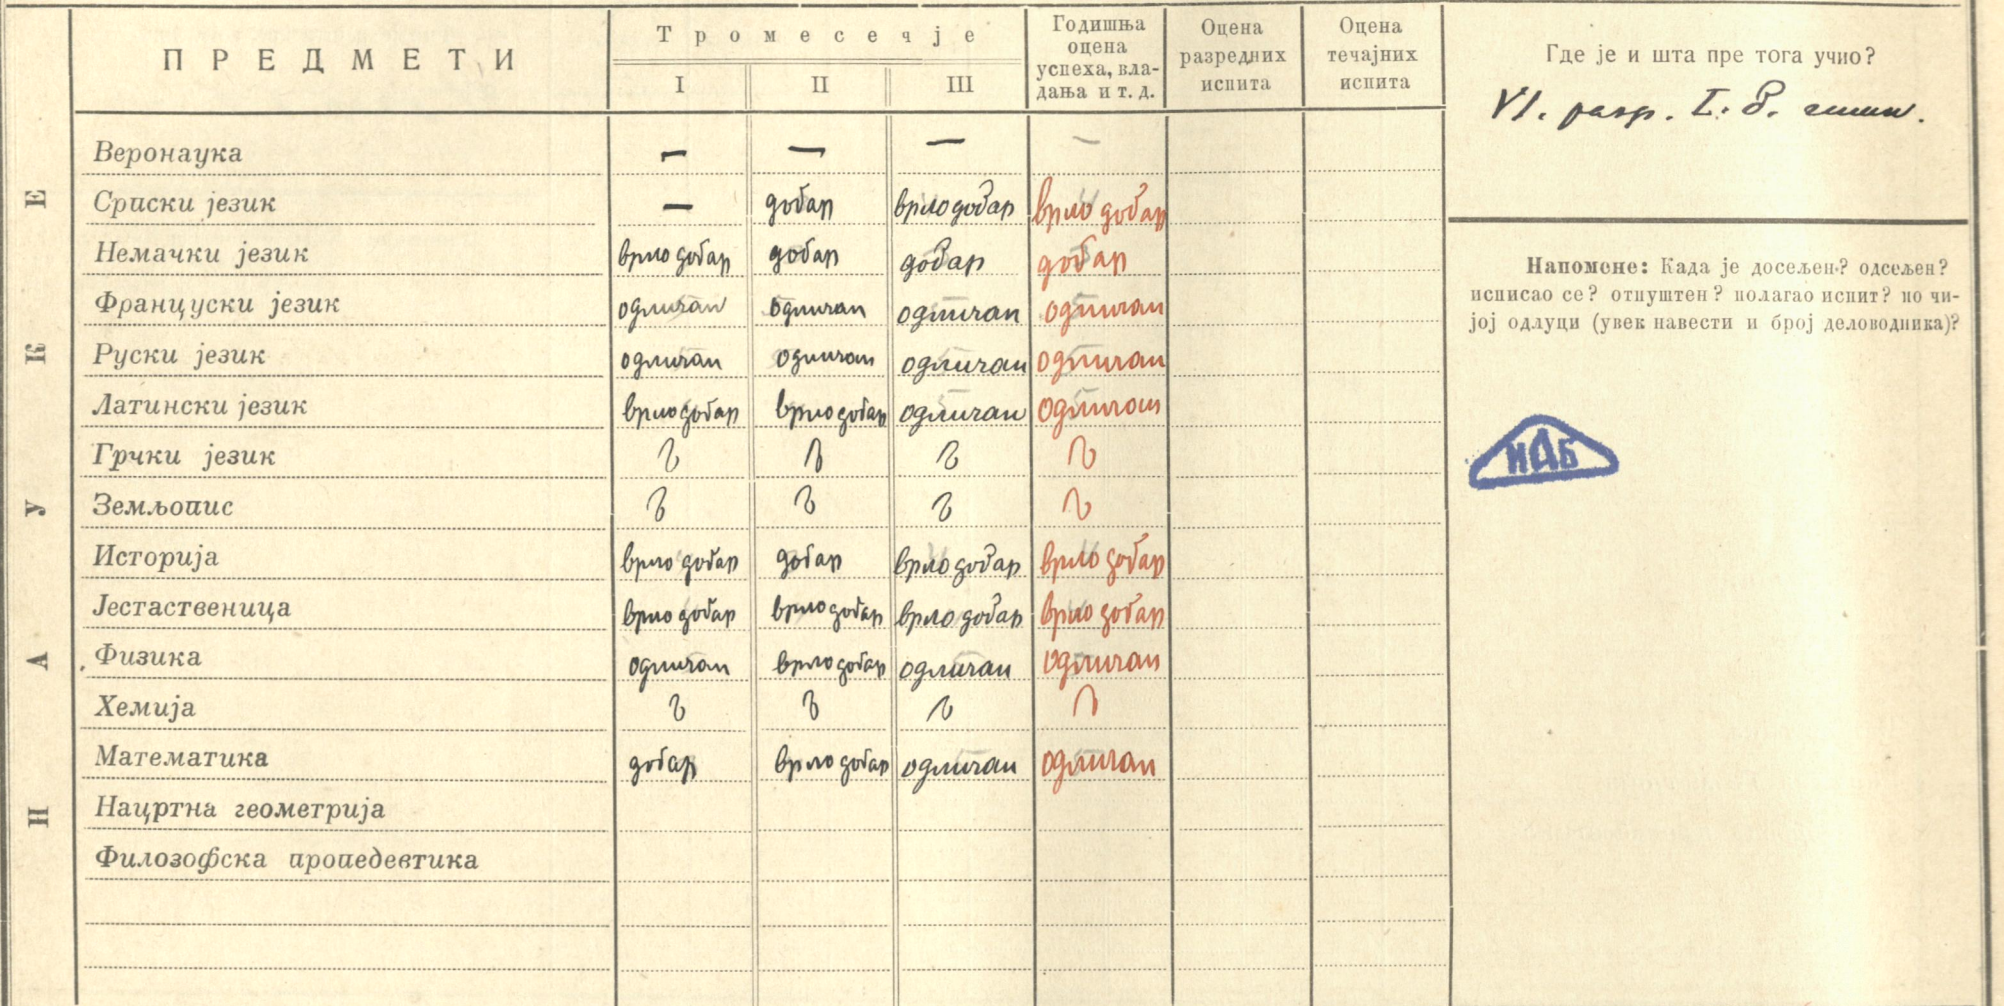 НАУКЕ
ПРЕДМЕТИ
Тромесечје
I II III
Годишња
оцена
успеха, вла-
дања и т. д.
Оцена
разредних
испита
Оцена
течајних
испита
Веронаука — — — —
Српски језик — добар врло добар врло добар
Немачки језик врло добар добар добар добар
Француски језик одличан одличан одличан одличан
Руски језик одличан одличан одличан одличан
Латински језик врло добар врло добар одличан одличан
Грчки језик
Земљопис
Историја врло добар добар врло добар врло добар
Јестаственица врло добар врло добар врло добар врло добар
Физика одличан врло добар одличан одличан
Хемија
Математика добар врло добар одличан одличан
Нацртна геометрија
Филозофска пропедевтика
Где је и шта пре тога учио?
VI. разр. I. б. гимн.
Напомене: Када је досељен? одсељен?
исписао се? отпуштен? полагао испит? по чи-
јој одлуци (увек навести и број деловодника)?
ИАБ